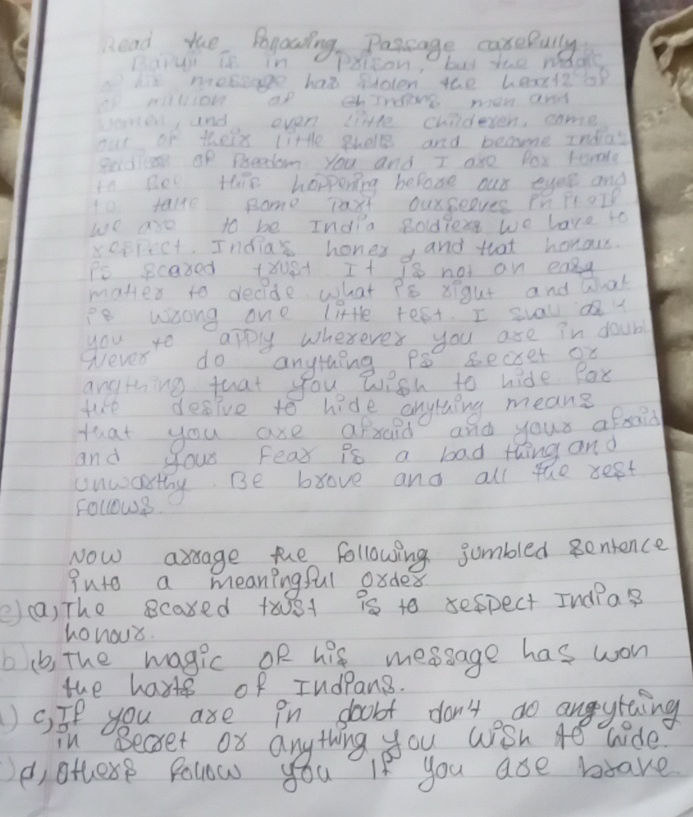 Read the following Passage carefully
Bapuji is in Prison, but the magic
of his message has stolen the heartz of
of million of Indians men and
women, and even little childeren, come
out of their little shells and become India's
of freedom you and I are
to see this happening before our eyes and
to take some Part ourseeves in it If
we are to be India soldiers we have to
respect. India's honer, and that honour.
is scared trust It is not an easy
matter to decide what is right and what
is wrong one little test. I shall ask
you to apply wherever you are in doubt
Never do anything is secret or
anything that you wish to hide for
the desive to hide anytying means
that you are afraid and your afraid
and your fear is a bad thing and
unworthy Be brove and all the rest
follows.
Now arrage the following jumbled sentence
into a meaningful order
e) (a) The scared trust is to respect India's
honour.
b (b, The magic of his message has won
the harts of Indians.
) c, If you are in doubt don't do angything
in secret or anything you wish to hide.
) d, others follow you if you are brave